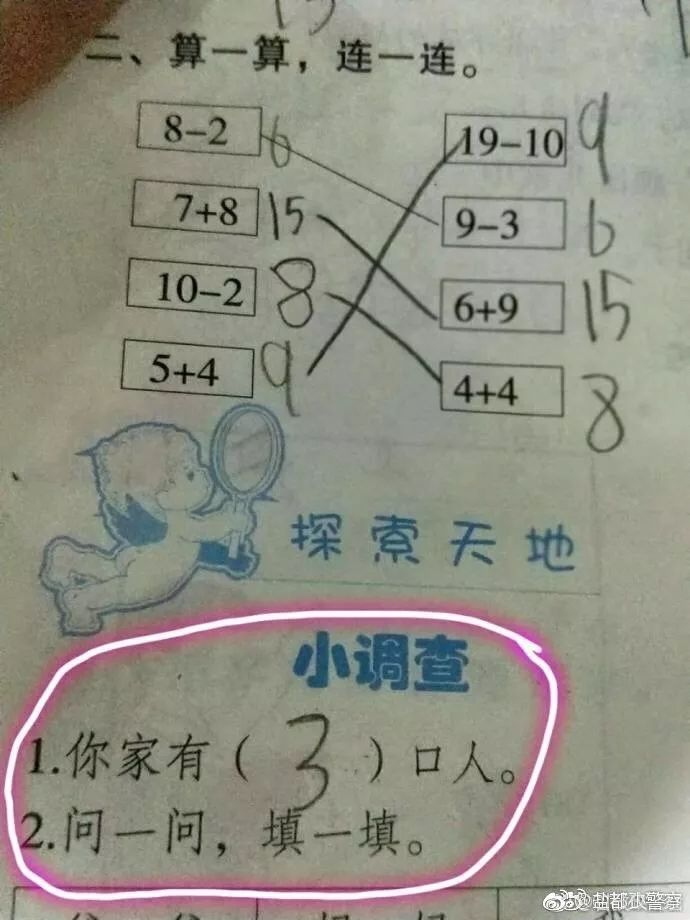 二、算一算，连一连。
8-2 6 19-10 9
7+8 15 9-3 6
10-2 8 6+9 15
5+4 9 4+4 8
探索天地
小调查
1.你家有（3）口人。
2.问一问，填一填。